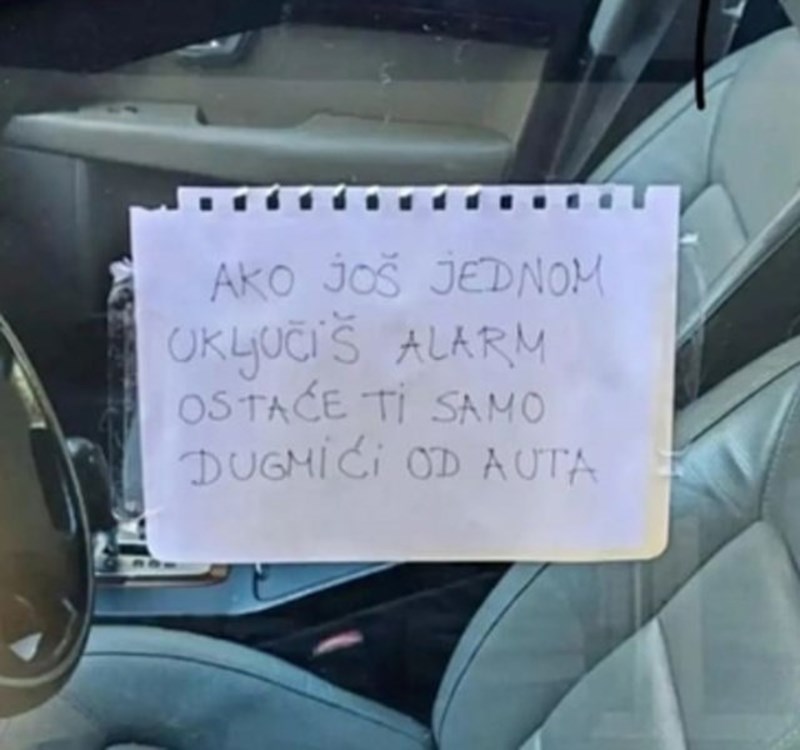 AKO JOŠ JEDNOM
UKLJUČIŠ ALARM
OSTAĆE TI SAMO
DUGMIĆI OD AUTA